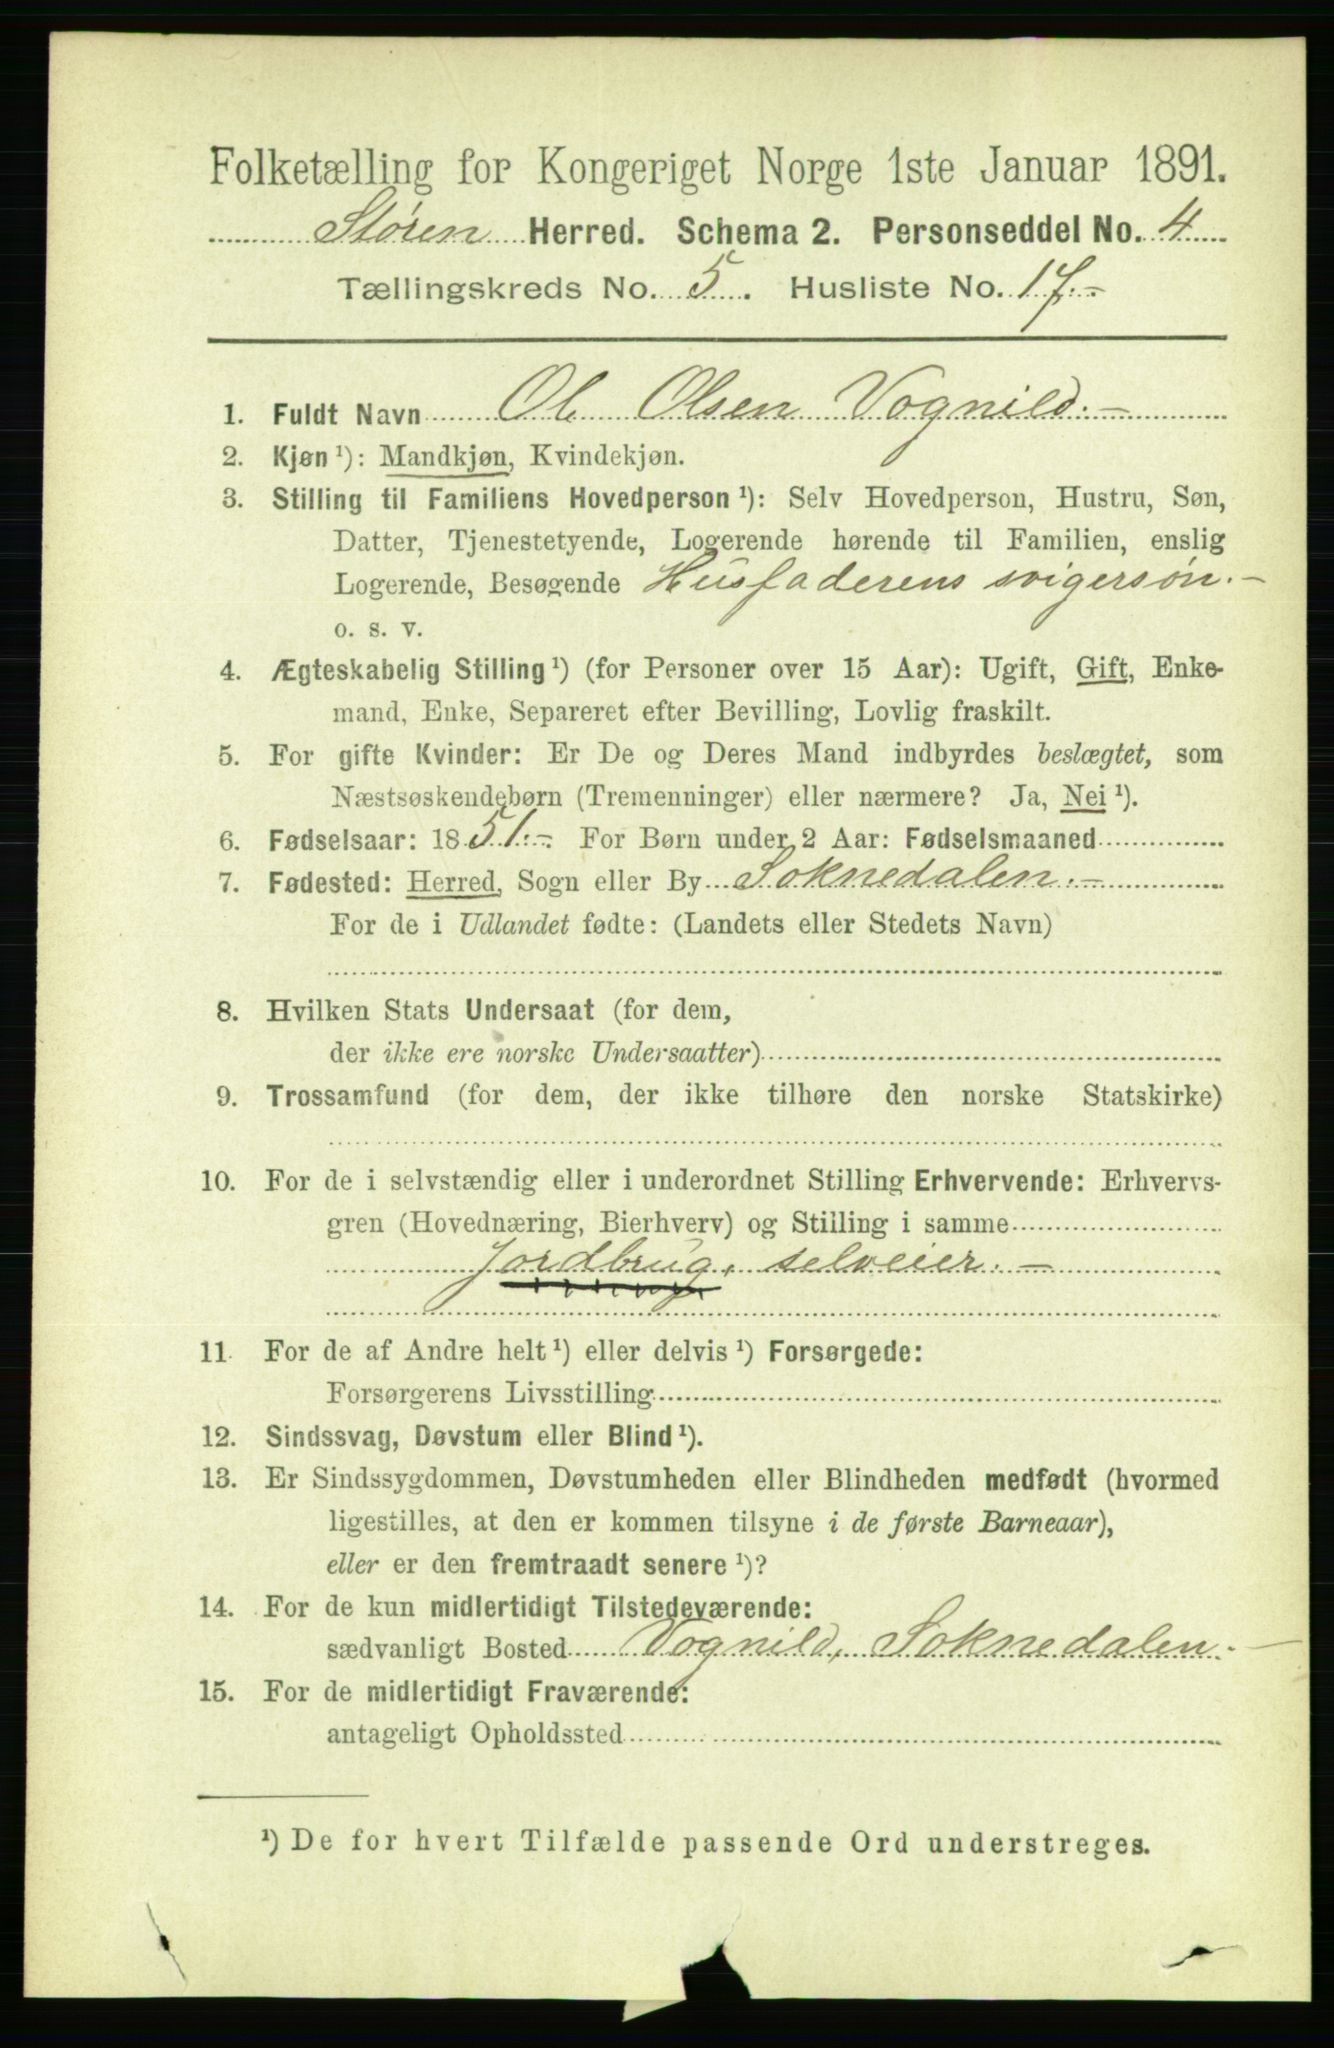 Folketælling for Kongeriget Norge 1ste Januar 1891.
Støren Herred. Schema 2. Personseddel No. 4
Tællingskreds No. 5. Husliste No. 17.-
1. Fuldt Navn Ole Olsen Vognild.-
2. Kjøn ¹): Mandkjøn, Kvindekjøn.
3. Stilling til Familiens Hovedperson ¹): Selv Hovedperson, Hustru, Søn,
Datter, Tjenestetyende, Logerende hørende til Familien, enslig
Logerende, Besøgende Husfaderens svigersøn.-
o. s. v.
4. Ægteskabelig Stilling ¹) (for Personer over 15 Aar): Ugift, Gift, Enke-
mand, Enke, Separeret efter Bevilling, Lovlig fraskilt.
5. For gifte Kvinder: Er De og Deres Mand indbyrdes beslægtet, som
Næstsøskendebørn (Tremenninger) eller nærmere? Ja, Nei ¹).
6. Fødselsaar: 1851.- For Børn under 2 Aar: Fødselsmaaned
7. Fødested: Herred, Sogn eller By Soknedalen.-
For de i Udlandet fødte: (Landets eller Stedets Navn)
8. Hvilken Stats Undersaat (for dem,
der ikke ere norske Undersaatter)
9. Trossamfund (for dem, der ikke tilhøre den norske Statskirke)
10. For de i selvstændig eller i underordnet Stilling Erhvervende: Erhvervs-
gren (Hovednæring, Bierhverv) og Stilling i samme
Jordbrug, selveier.-
11. For de af Andre helt ¹) eller delvis ¹) Forsørgede:
Forsørgerens Livsstilling
12. Sindssvag, Døvstum eller Blind ¹).
13. Er Sindssygdommen, Døvstumheden eller Blindheden medfødt (hvormed
ligestilles, at den er kommen tilsyne i de første Barneaar),
eller er den fremtraadt senere ¹)?
14. For de kun midlertidigt Tilstedeværende:
sædvanligt Bosted Vognild, Soknedalen.-
15. For de midlertidigt Fraværende:
antageligt Opholdssted
¹) De for hvert Tilfælde passende Ord understreges.